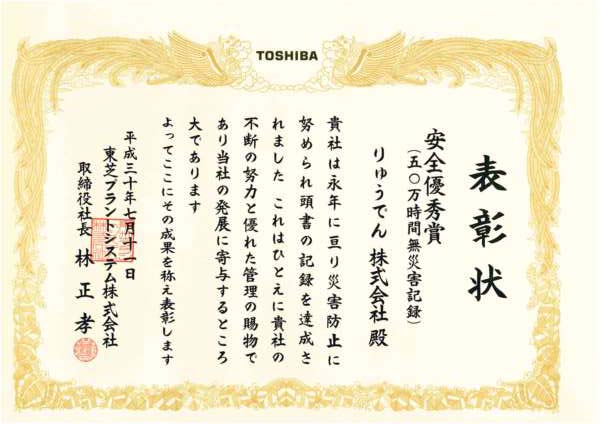 TOSHIBA
表彰状
安全優秀賞
(五〇万時間無災害記録)
りゅうでん 株式会社 殿
貴社は永年に亘り災害防止に
努められ頭書の記録を達成さ
れました これはひとえに貴社の
不断の努力と優れた管理の賜物で
あり当社の発展に寄与するところ
大であります
よってここにその成果を称え表彰します
平成三十年七月十二日
東芝プラントシステム株式会社
取締役社長 林 正孝